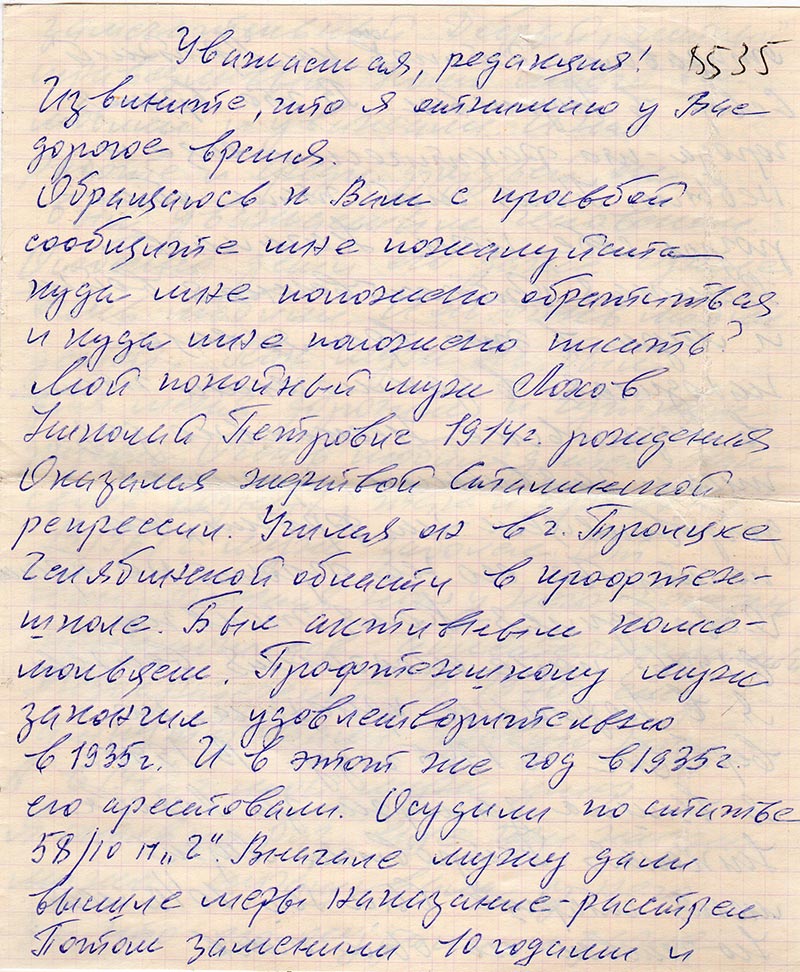 Уважаемая, редакция! 8535
Извините, что я отнимаю у Вас
дорогое время.
Обращаюсь к Вам с просьбой
сообщите мне пожалуйста
куда мне положено обратиться
и куда мне положено писать?
Мой покойный муж Лохов
Николай Петрович 1914г. рождения
Оказался жертвой Сталинской
репрессии. Учился он в г. Троицке
Челябинской области в профтех-
школе. Был активным комсо-
мольцем. Профтехшколу муж
закончил удовлетворительно
в 1935г. И в этот же год в 1935г.
его арестовали. Осудили по статье
58/10 п „2“. Вначале мужу дали
высшее меры наказание-расстрел
Потом заменили 10 годами и